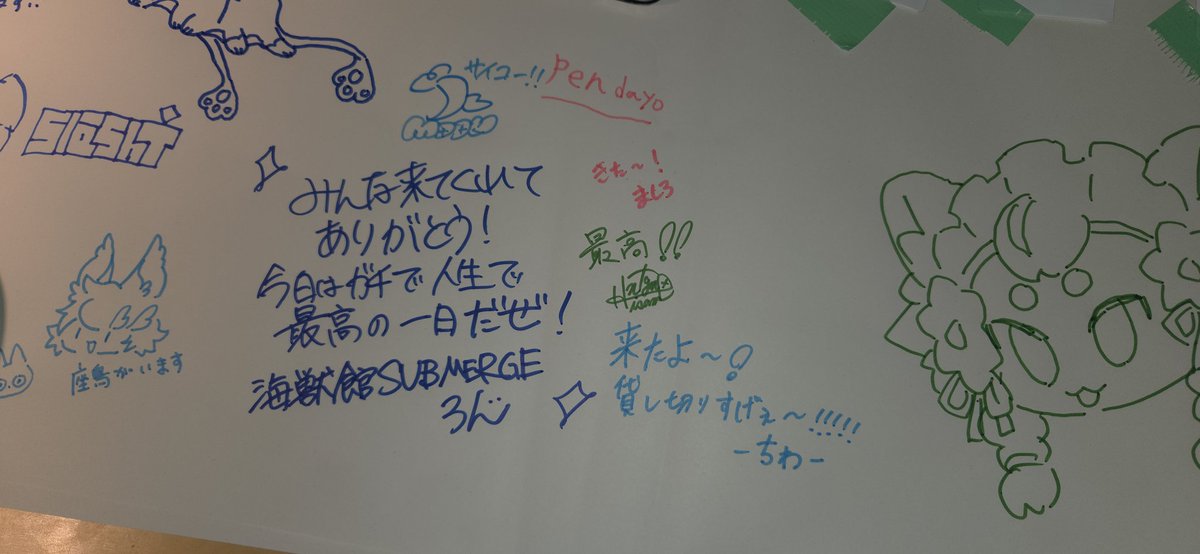 サイコー!!
Pen dayo
きた〜!
ましろ
みんな来てくれて
ありがとう!
今日はガチで人生で
最高の一日だぜ!
海獣館SUBMERGE
ろんじ
最高!!
来たよ〜!
貸し切りすげぇ〜!!!!!
-ちわ-
座鳥がいます